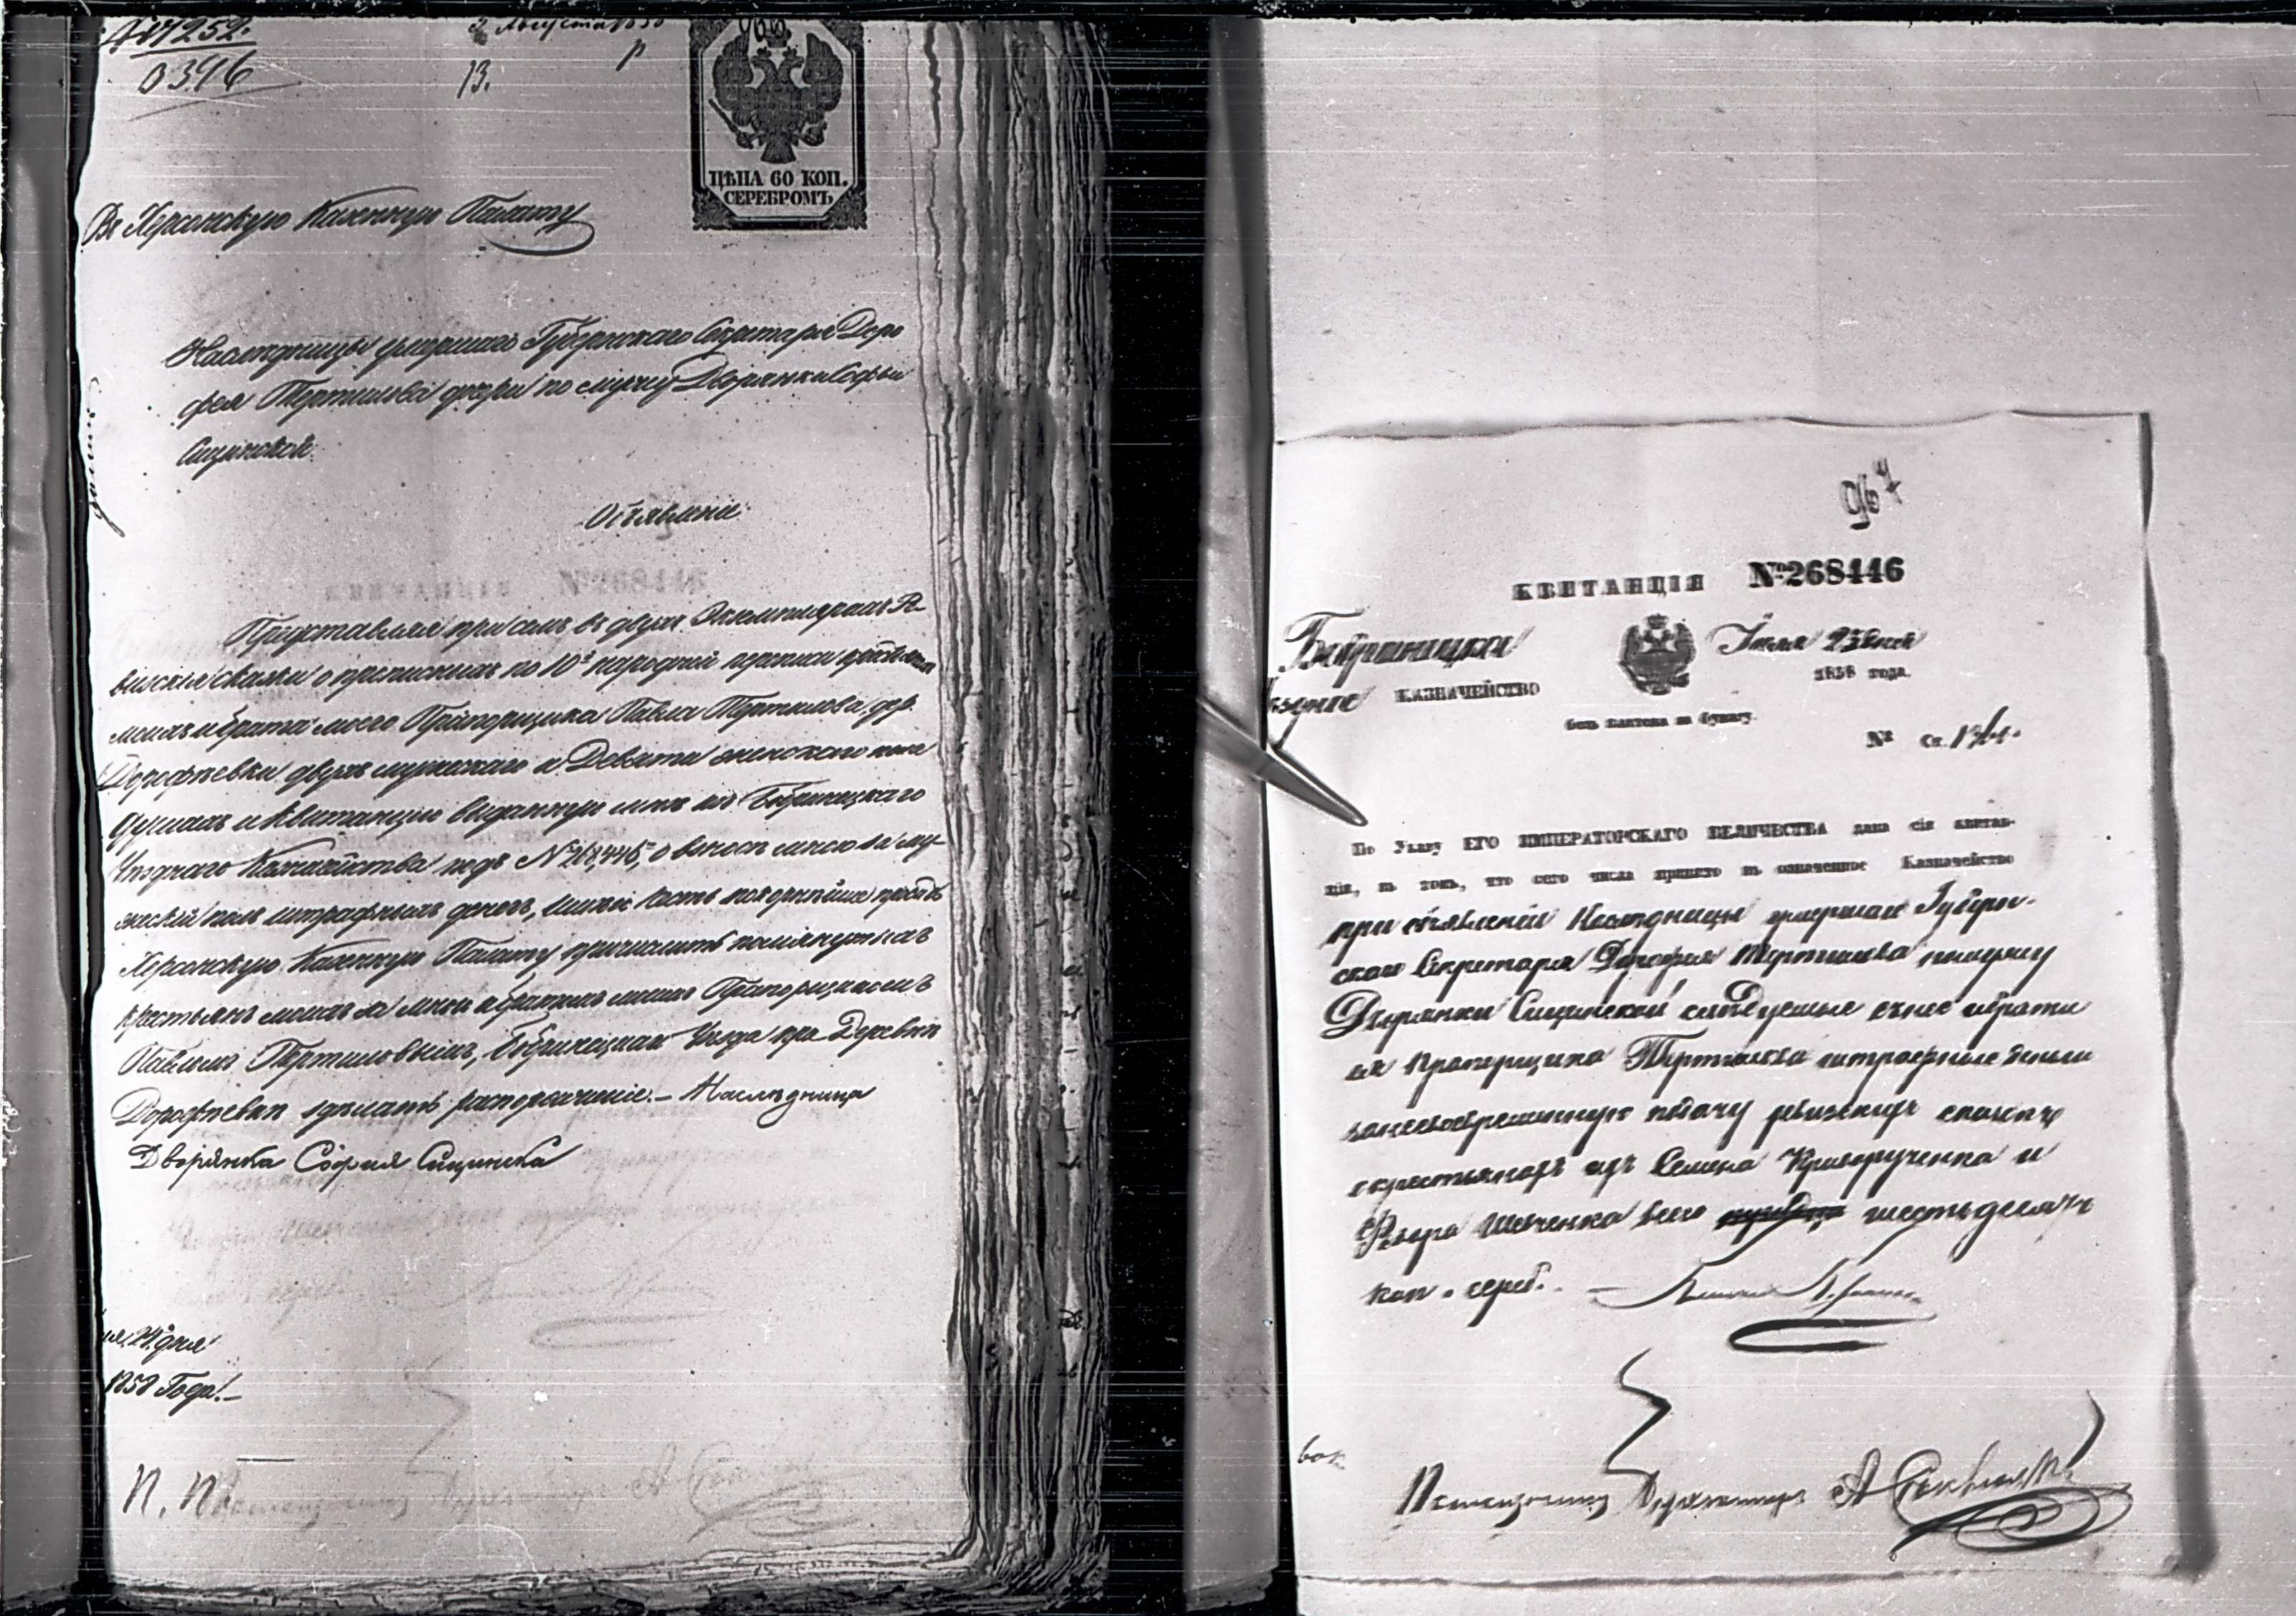 № 7252.
0396
2 Августа 1858
13.
р
966
ЦѢНА 60 КОП.
СЕРЕБРОМЪ
Въ Херсонскую Казенную Палату
Наслѣдницы умершаго Губернскаго Секретаря Доро
фея Тертилова дочери по мужу Дворянки Софьи
Сицинской.
Объявленіе
Представляя при семъ въ двухъ Экземплярахъ Ре
визскія сказки о прописныхъ по 10й народной переписи
моихъ и брата моего Прапорщика Павла Тертилова дер.
Дорофѣевки двухъ мужскаго и Девяти женскаго пола
душахъ и Квитанцію выданную мнѣ изъ Бобринецкаго
Уѣзднаго Казначейства подъ №268,446, о взносѣ мною за му-
жескій полъ штрафныхъ денегъ, имѣю честь покорнѣйше
Херсонскую Казенную Палату причислить помянутыхъ
крестьянъ моихъ за мною и братомъ моимъ Прапорщикомъ
Павломъ Тертиловымъ, Бобринецкаго Уѣзда при Деревнѣ
Дорофѣевки здѣлать распоряженіе. — Наслѣдница
Дворянка София Сицинска
24 дня
1858 Года. —
П. П
967
КВИТАНЦІЯ №268446
Бобринецкое
КАЗНАЧЕЙСТВО
Іюля 23 дня
1858 года.
безъ платежа за бумагу.
№ Ст.
По Указу ЕГО ИМПЕРАТОРСКАГО ВЕЛИЧЕСТВА дана сія квитан-
ція, въ томъ, что сего числа принято въ означенное Казначейство
при объявленіи Наслѣдницы умершаго Губерн-
скаго Секретаря Дорофея Тертилова по мужу
Дворянки Сицинской слѣдуемые съ нее и брата
ея Прапорщика Тертилова штрафные деньги
за несвоевременную подачу ревизскихъ сказокъ
о крестьянахъ ихъ Семена Криворученка и
Федора Шевченка всего шестьдесятъ
коп. сереб. —